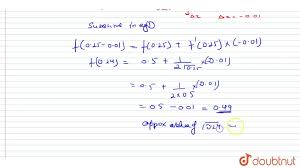 Δx Δx = -0.01
Substitute in eq 1)
f(0.25-0.01) = f(0.25) + f'(0.25) × (-0.01)
f(0.24) = 0.5 + 1/2√0.25 × (-0.01)
= 0.5 + 1/2×0.5 × (-0.01)
= 0.5 - 0.01 = 0.49
approx value of √0.24 =
doubtnut